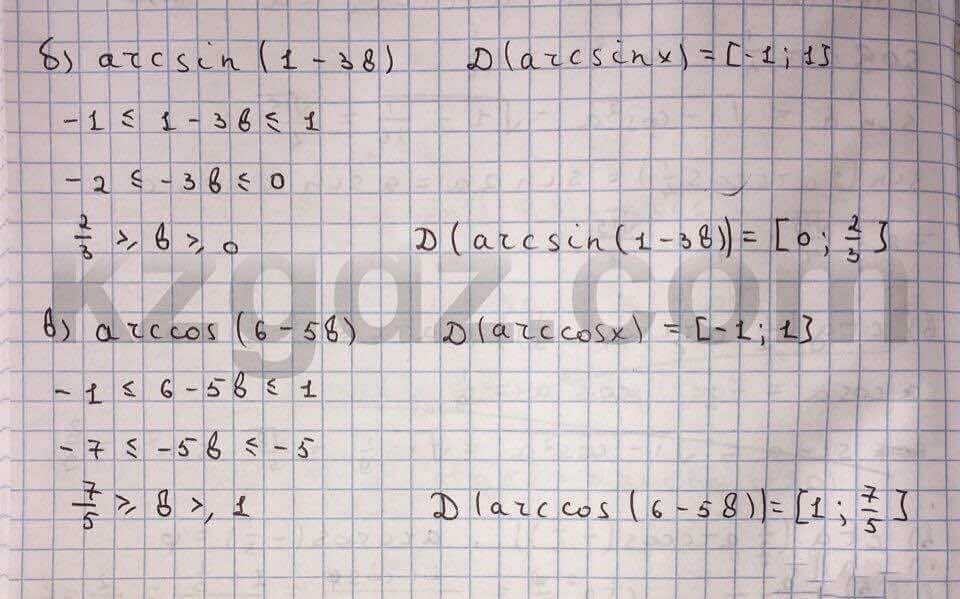 б) arcsin(1-3в) D(arcsinx)=[-1;1]
-1 ≤ 1-3в ≤ 1
-2 ≤ -3в ≤ 0
2/3 ≥ в ≥ 0 D(arcsin(1-3в))=[0; 2/3]
kzgaz.com
в) arccos(6-5в) D(arccosx)=[-1;1]
-1 ≤ 6-5в ≤ 1
-7 ≤ -5в ≤ -5
7/5 ≥ в ≥ 1 D(arccos(6-5в))=[1; 7/5]